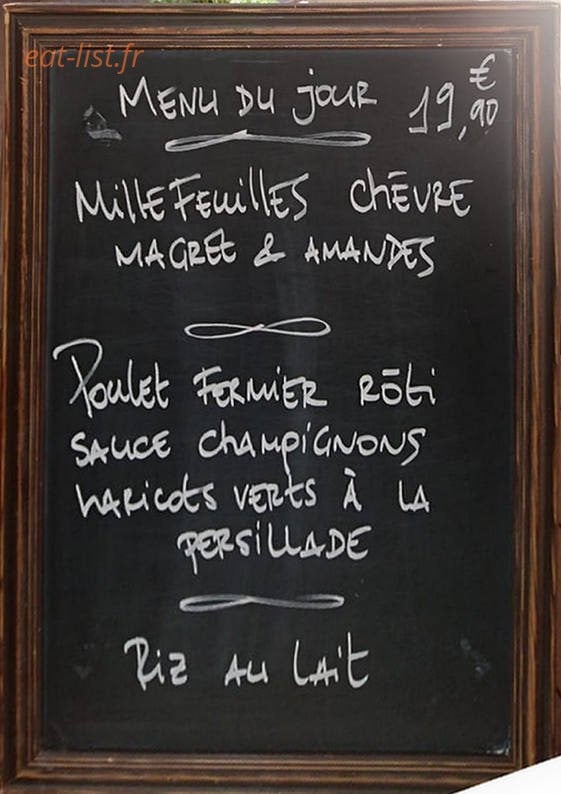 eat-list.fr
MENU DU jOUR 19,90 €
MillEFEuillES CHÈVRE
MAGRET & AMANDES
Poulet FERMiER RôTi
SAUCE CHAMPiGNONS
HARiCOTS VERTS À LA
PERSiLLADE
Riz AU Lait